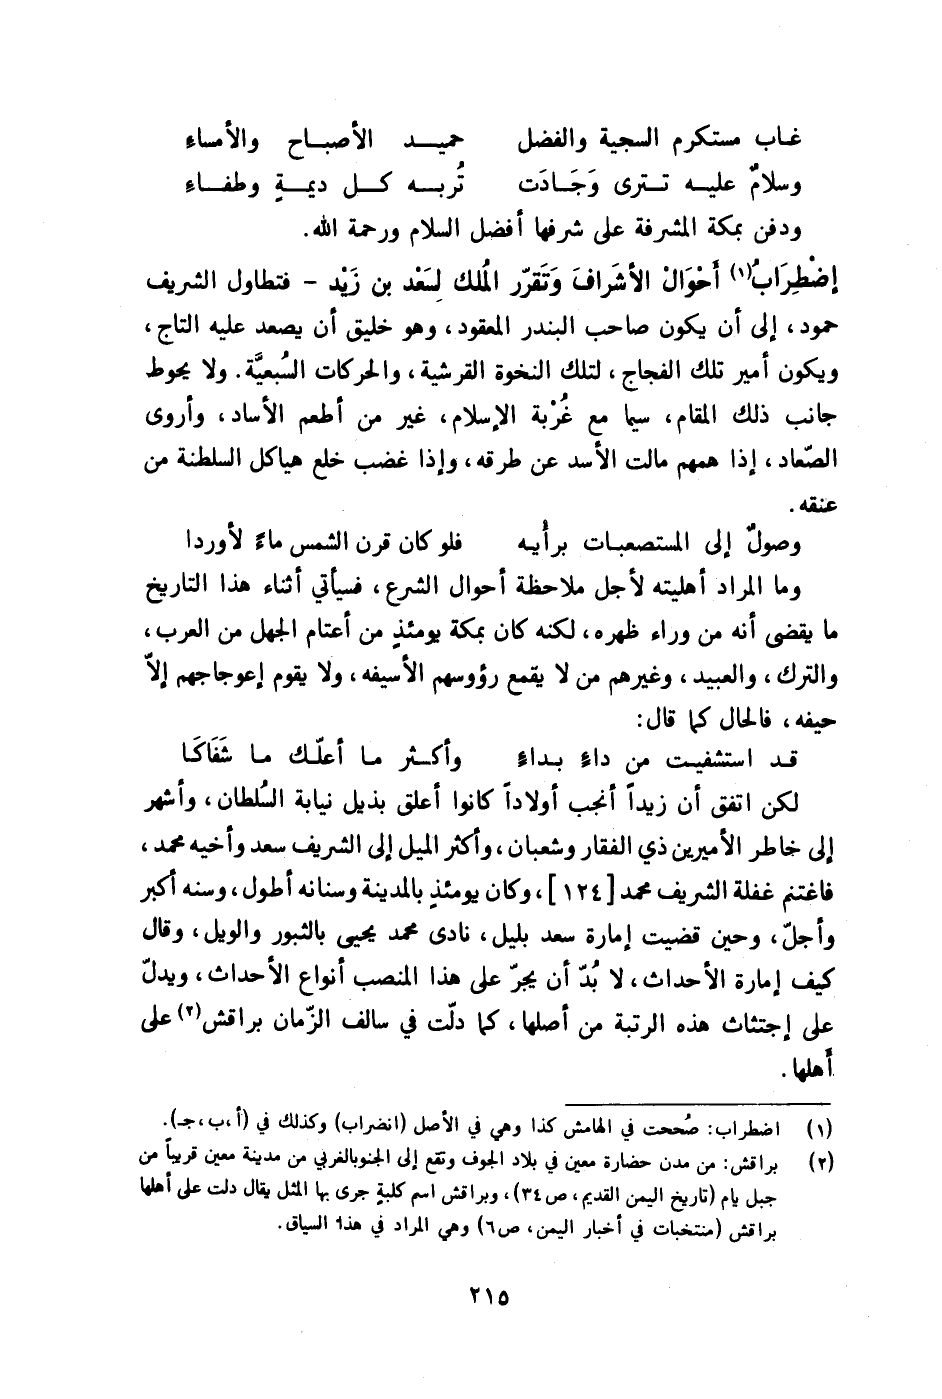 غاب مستكرم السجية والفضل حميد الأصباح والأمساء
وسلامٌ عليه تترى وَجَادَت تُربه كل ديمةٍ وطفاء
ودفن بمكة المشرفة على شرفها أفضل السلام ورحمة الله.
إضْطِرَابُ(١) أَحْوَالْ الأشَرافَ وَتَقرّر الُملك لِسَعْد بن زَيْد - فتطاول الشريف
حمود، إلى أن يكون صاحب البندر المعقود، وهو خليق أن يصعد عليه التاج،
ويكون أمير تلك الفجاج، لتلك النخوة القرشية، والحركات السُبعيَّة. ولا يحوط
جانب ذلك المقام، سيما مع غُرْبة الإسلام، غير من أطعم الأساد، وأروى
الصّعاد، إذا همهم مالت الأسد عن طرقه، وإذا غضب خلع هياكل السلطنة من
عنقه.
وصولٌ إلى المستصعبات برأيه فلو كان قرن الشمس ماءً لأوردا
وما المراد أهليته لأجل ملاحظة أحوال الشرع، فسيأتي أثناء هذا التاريخ
ما يقضى أنه من وراء ظهره، لكنه كان بمكة يومئذٍ من أعتام الجهل من العرب،
والترك، والعبيد، وغيرهم من لا يقمع رؤوسهم الأسيفه، ولا يقوم إعوجاجهم إلاّ
حيفه، فالحال كما قال:
قد استشفيت من داءٍ بداءٍ وأكثر ما أعلّك ما شَفَاكَا
لكن اتفق أن زيداً أنجب أولاداً كانوا أعلق بذيل نيابة السُلطان، وأشهر
إلى خاطر الأميرين ذي الفقار وشعبان، وأكثر الميل إلى الشريف سعد وأخيه محمد،
فاغتنم غفلة الشريف محمد [١٢٤]، وكان يومئذٍ بالمدينة وسنانه أطول، وسنه أكبر
وأجلّ، وحين قضيت إمارة سعد بليل، نادى محمد يحيى بالثبور والويل، وقال
كيف إمارة الأحداث، لا بُدّ أن يجرّ على هذا المنصب أنواع الأحداث، ويدلّ
على إجتثاث هذه الرتبة من أصلها، كما دلّت في سالف الزّمان براقش(٢) على
أهلها.
(١) اضطراب: صُححت في الهامش كذا وهي في الأصل (انضراب) وكذلك في (أ،ب،جـ).
(٢) براقش: من مدن حضارة معين في بلاد الجوف وتقع إلى الجنوبالغربي من مدينة معين قريباً من
جبل يام (تاريخ اليمن القديم، ص٣٤)، وبراقش اسم كلبةٍ جرى بها المثل يقال دلت على أهلها
براقش (منتخبات في أخبار اليمن، ص٦) وهي المراد في هذا السياق.
٢١٥